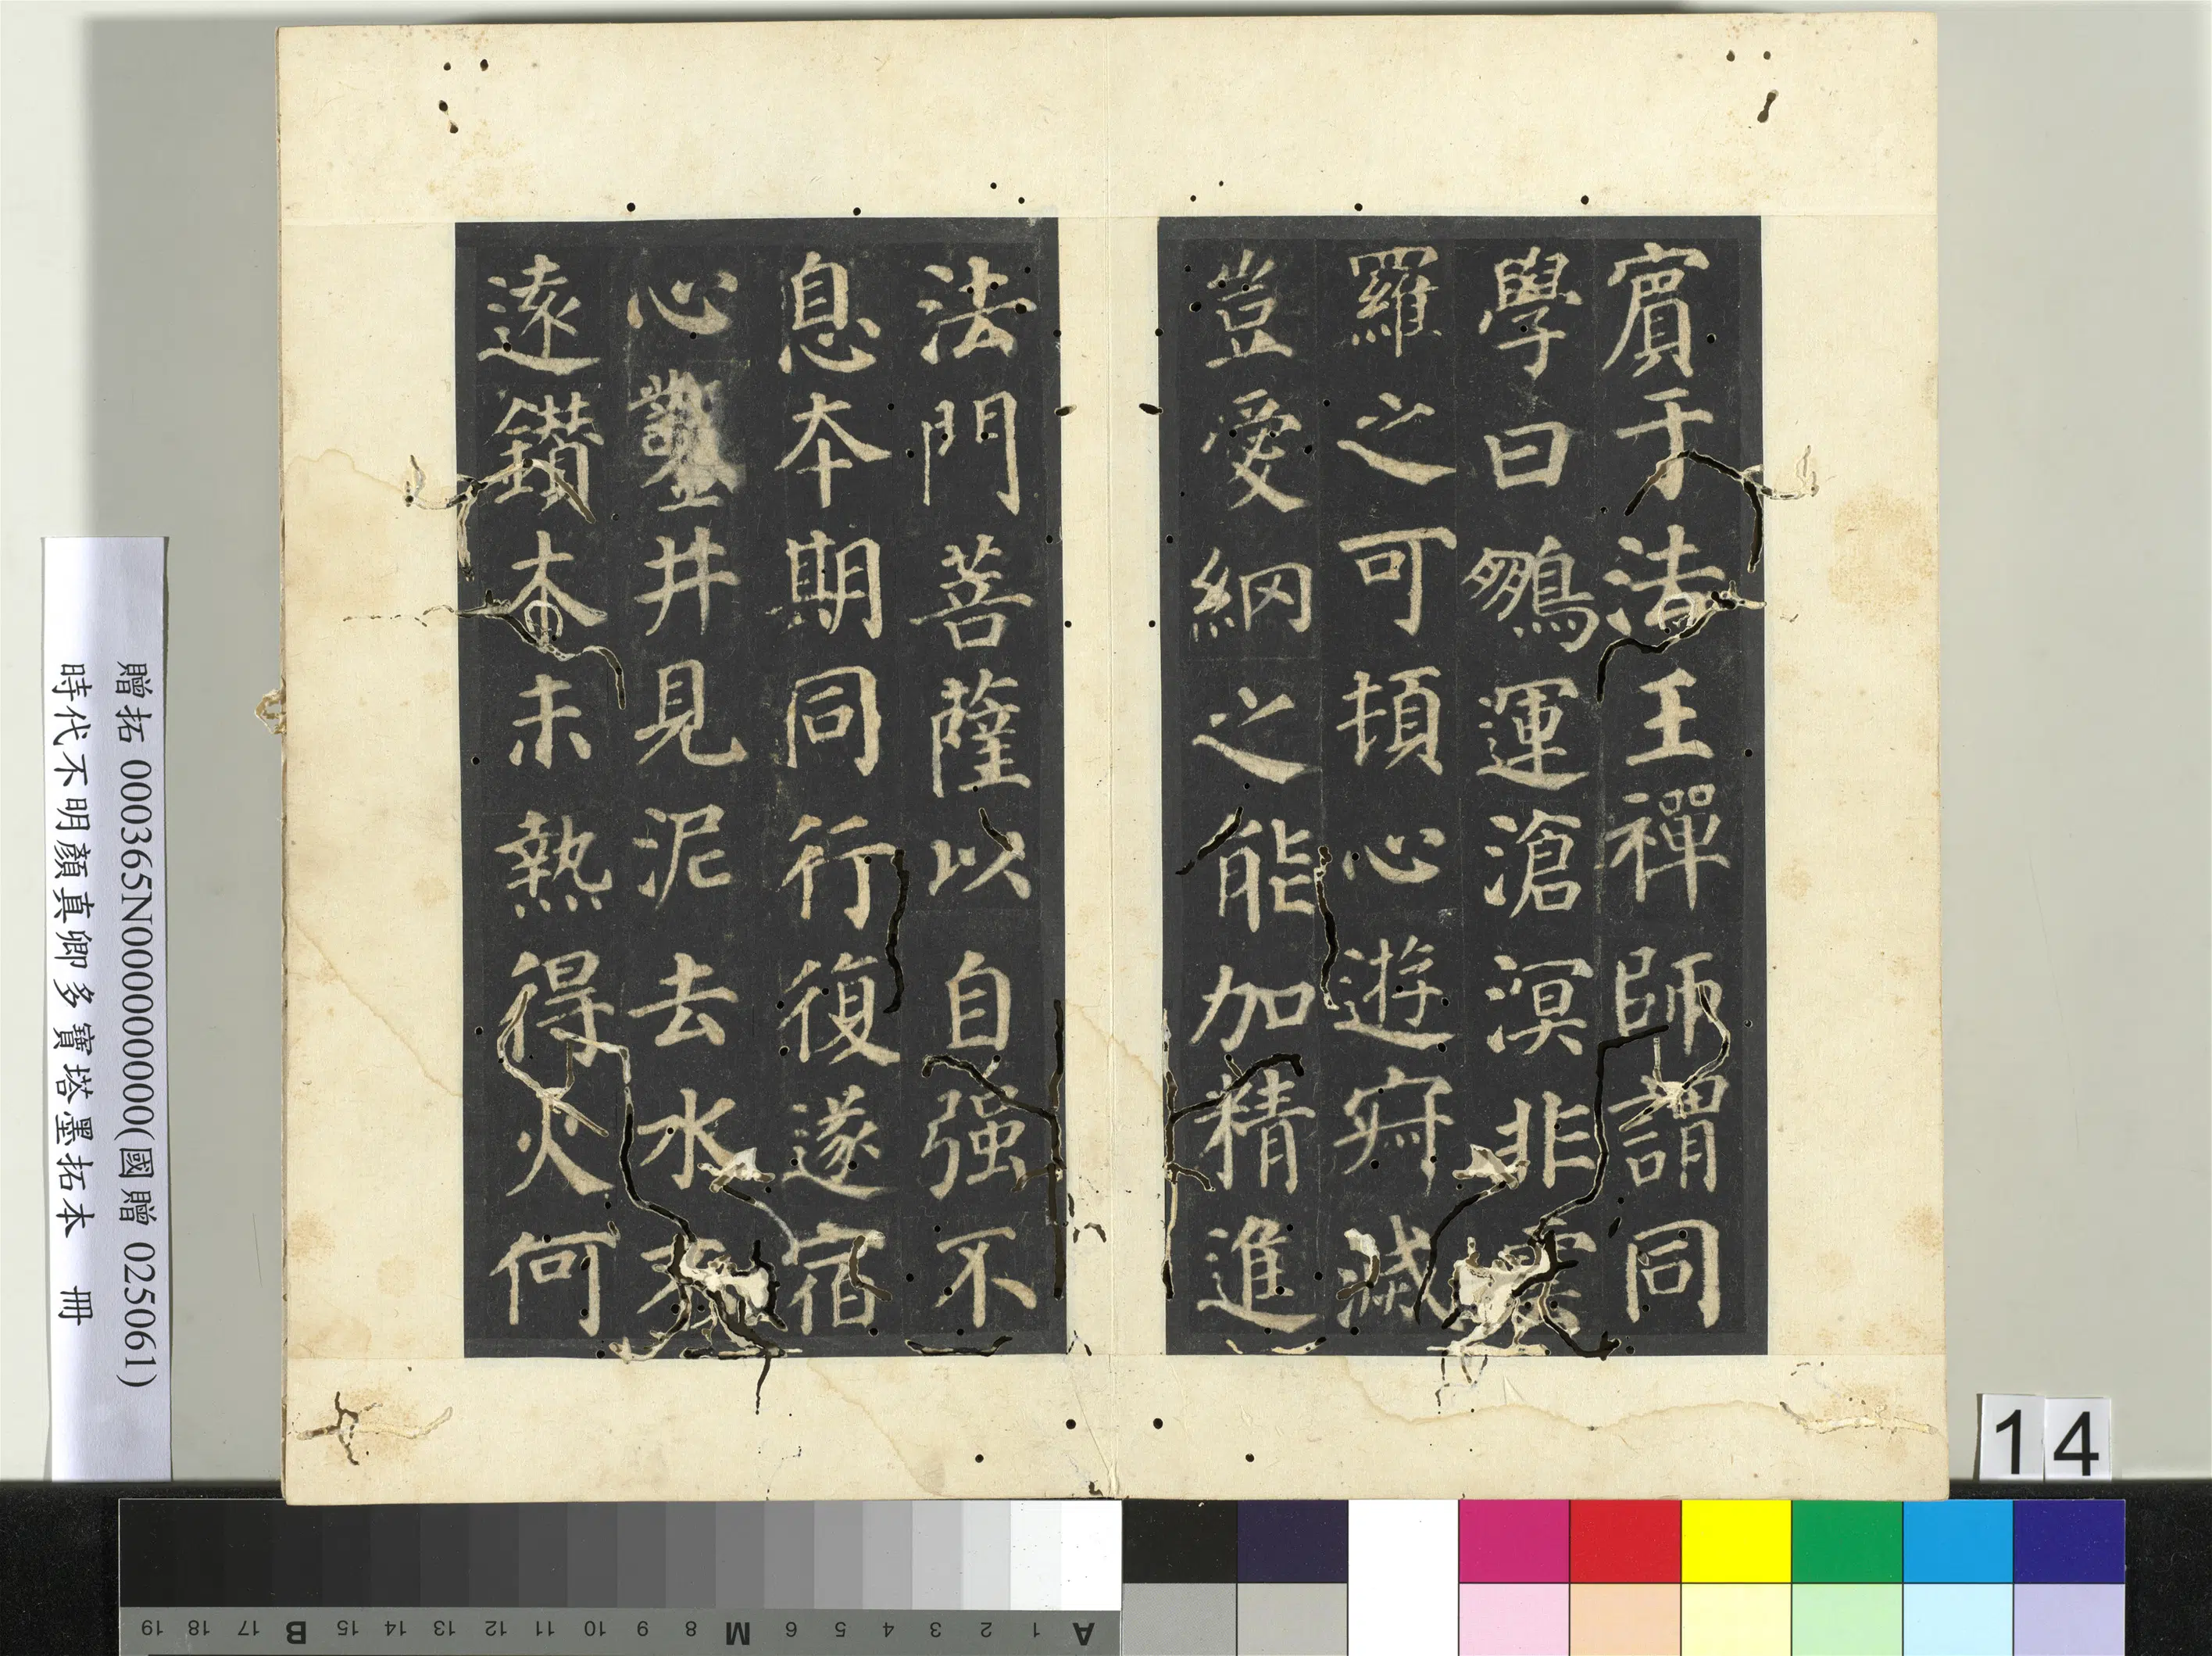 賔于法王禪師謂同
學曰鵬運滄溟非雲
羅之可頓心遊寂滅
豈愛綱之能加精進
法門菩薩以自强不
息本期同行復遂宿
心鑿井見泥去水不
遠鑽木未熱得火何
贈拓 000365N000000000(國贈 025061)
時代不明顏真卿多寶塔墨拓本 冊
14
A 1 2 3 4 5 6 M 8 9 10 11 12 13 14 15 B 17 18 19